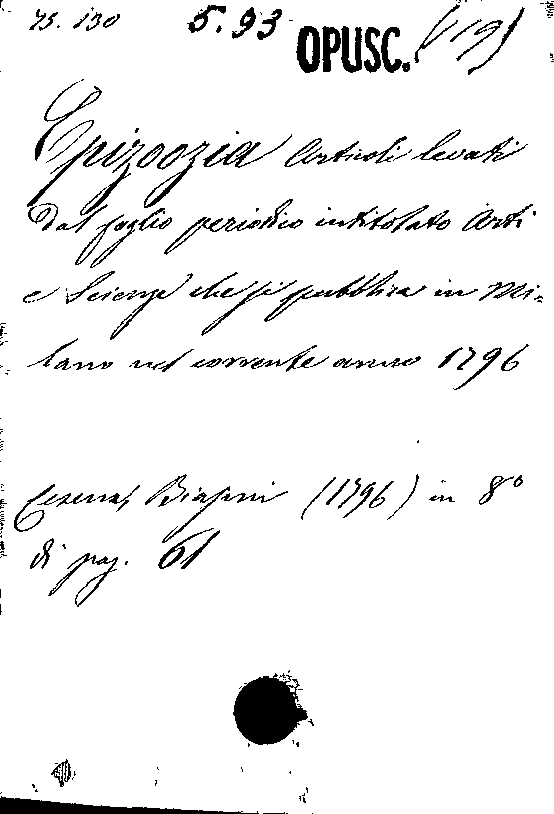 75. 130 5. 93 OPUSC. (19)
Epizoozia Articoli levati
dal foglio periodico intitolato Arti
e Scienze che si pubblica in Mi-
lano nel corrente anno 1796
Cesena, Biasini (1796) in 8°
di pag. 61